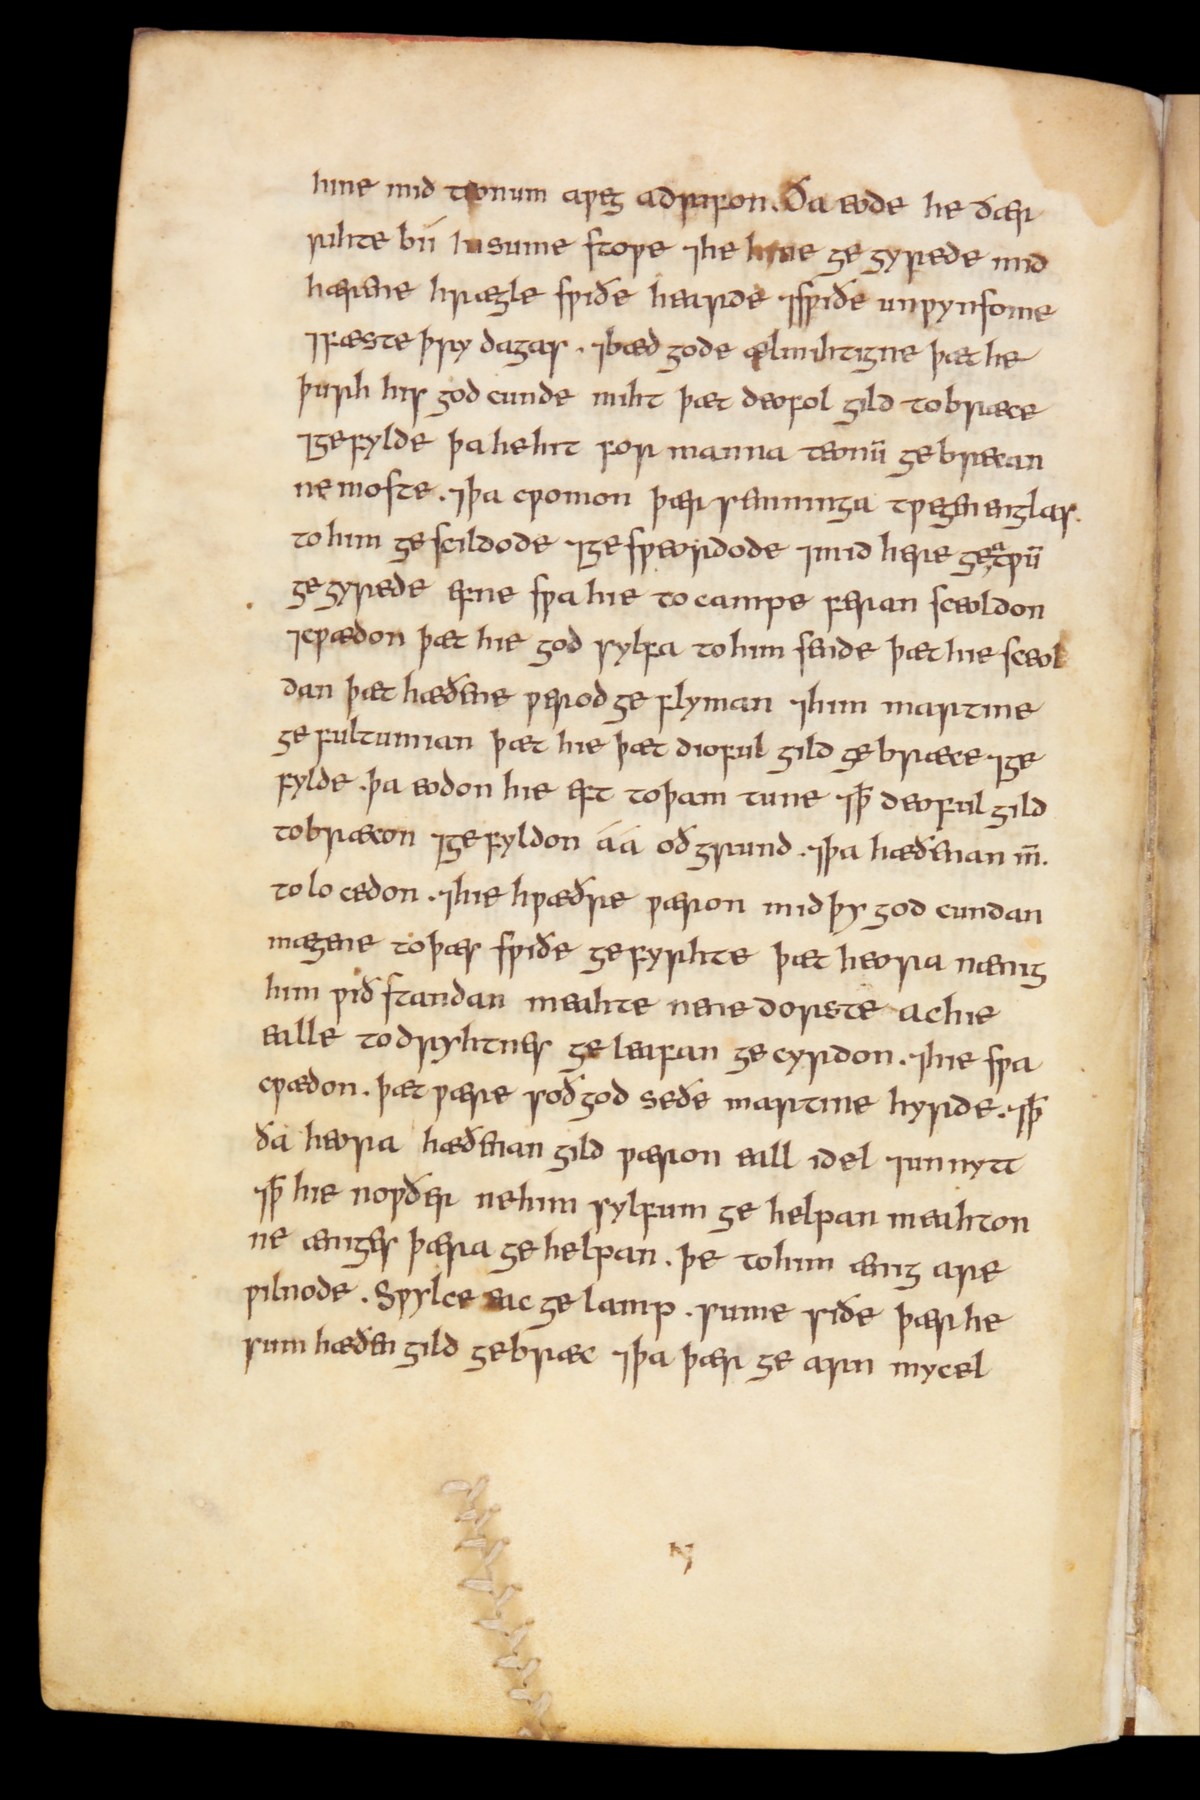 hine mid teonum aƿeg adrifon. Ða eode he ðær
rihte bii in sume stoƿe ⁊ he hine ge gyrede mid
hærene hrægle sƿiðe heardre ⁊ sƿiðe unƿynsome
⁊ fæste þry dagas . ⁊ bæd gode ælmihtigne þæt he
þurh his god cunde miht þæt deofol gild tobræce
⁊ gefylde þa he hit for manna teonū gebrecan
ne moste . ⁊ þa cƿomon þær semninga tƿegen englas.
to him ge scildode ⁊ ge sƿeordode ⁊ mid here geatƿū
ge gyrede efne sƿa hie to campe feran sceoldon
⁊ cƿædon þæt hie god sylfa to him sende þæt hie sceol
dan þæt hæðene ƿerod ge flyman ⁊ him martine
ge fultumian þæt hie þæt dioful gild gebræce ⁊ ge
fylde . þa eodon hie eft to þam tune ⁊ ꝥ deoful gild
tobræcon ⁊ gefyldon áá oð grund . ⁊ þa hæðenan m̄.
to lo cedon . ⁊ hie hƿæðre ƿæron mid þy god cundan
mægene to þæs sƿiðe gefyrhte þæt heora nænig
him ƿið standan meahte ne ne dorste ac hie
ealle to dryhtnes ge leafan ge cyrdon . ⁊ hie sƿa
cƿædon . þæt ƿære soð god se ðe martine hyrde . ⁊ ꝥ
ða heora hæðenan gild ƿæron eall idel ⁊ unnytt
⁊ ꝥ hie noƿðer ne him sylfum ge helpan meahton
ne ænges þæra ge helpan . þe to him ænig are
ƿilnode . Sƿylce eac ge lamp . sume siðe þær he
sum hæðen gild gebræc ⁊ þa þær ge arn mycel